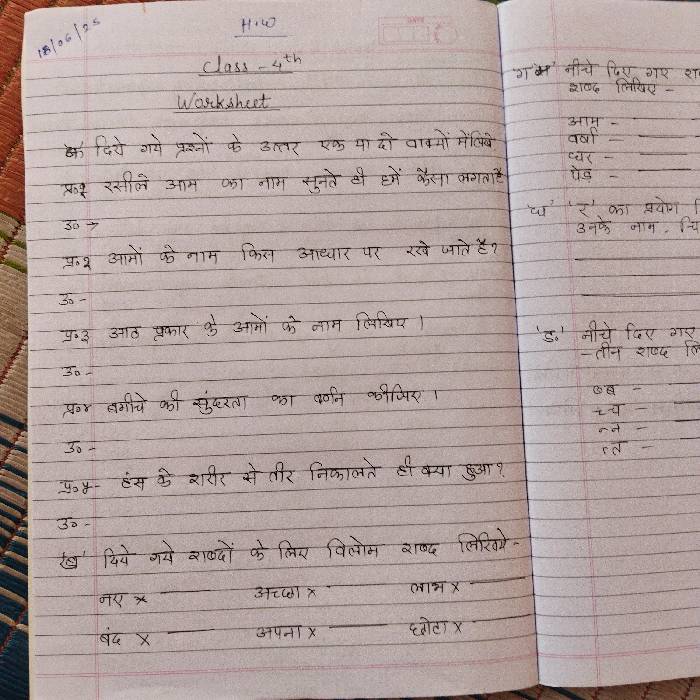 18/06/25
H.W
DATE
Class - 4th
Worksheet
'क' दिये गये प्रश्नों के उत्तर एक या दो वाक्यों में लिखे
प्र०१ रसीले आम का नाम सुनते ही हमें कैसा लगता है
उ० →
प्र०२ आमों के नाम किस आध्यार पर रखे जाते है?
उ० -
प्र०३ आठ प्रकार के आमों के नाम लिखिए ।
उ० -
प्र०४ बगीचे की सुंदरता का वर्णन कीजिए ।
उ० -
प्र०५- हंस के शरीर से तीर निकालते ही क्या हुआ?
उ० -
'ख' दिये गये शब्दों के लिए विलोम शब्द लिखिये -
नए × —— अच्छा × —— लाभ × ——
बंद × —— अपना × —— छोटा × ——
ग नीचे दिए गए
शब्द लिखिए -
आम -
वर्षा -
पेड़ -
'घ' 'र' का प्रयोग
उनके नाम
'ड.' नीचे दिए गए
- तीन शब्द
ब्ब -
च्च -
न्न -
त्त -